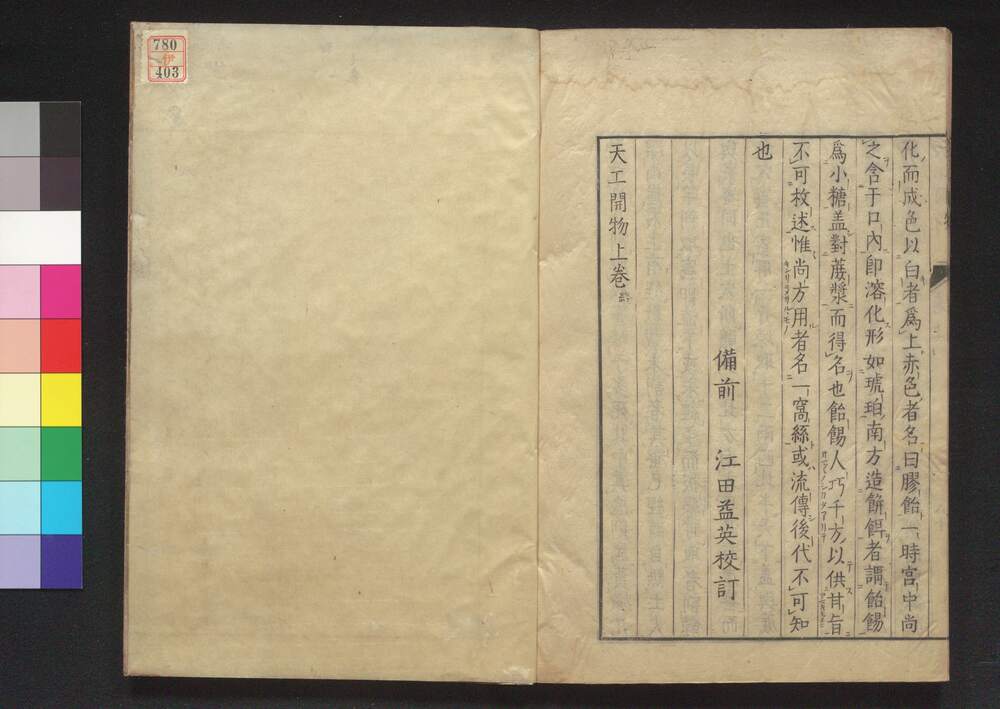 化而成色以白者爲上赤色者名曰膠飴一時宮中尚
之含于口內即溶化形如琥珀南方造餅餌者謂飴餳
爲小糖盖對蔗漿而得名也飴餳人巧千方以供甘旨
不可枚述惟尚方用者名一窩絲或流傳後代不可知
也
備前 江田益英校訂
天工開物上卷
780
伊
403